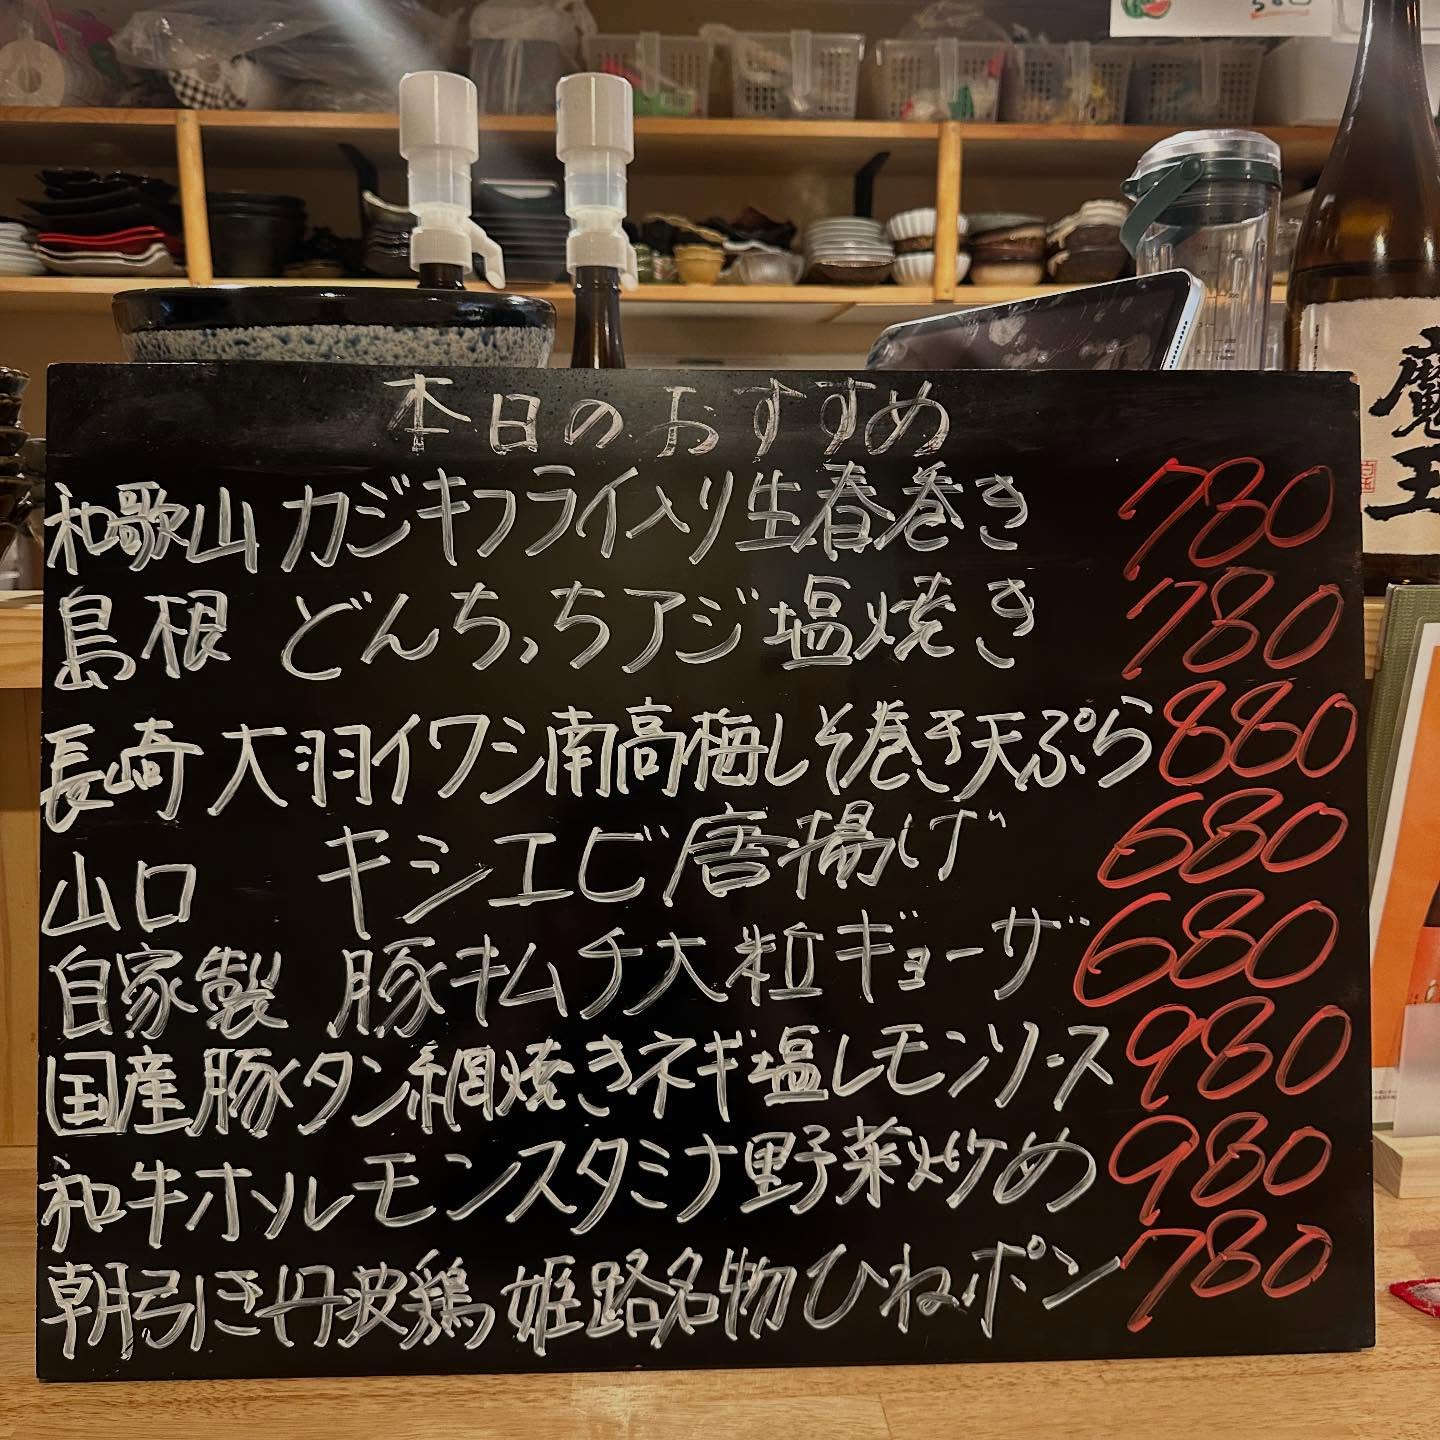 本日のおすすめ
和歌山 カジキフライ入り生春巻き 780
島根 どんちっちアジ塩焼き 780
長崎 大羽イワシ南高梅しそ巻き天ぷら 880
山口 キシエビ唐揚げ 680
自家製 豚キムチ大粒ギョーザ 680
国産豚タン網焼きネギ塩レモンソース 980
和牛ホルモンスタミナ野菜炒め 980
朝引き丹波鶏 姫路名物ひねポン 780
魔王